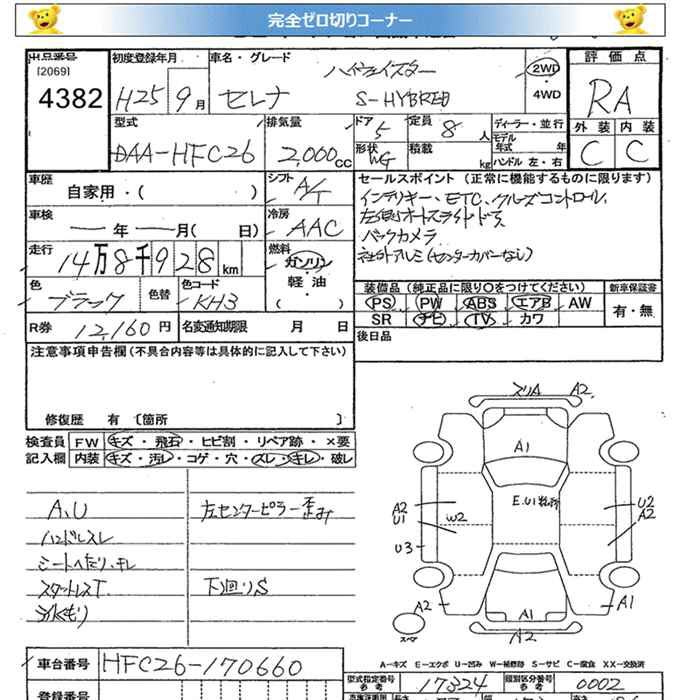 完全ゼロ切りコーナー
出品番号
[2069]
4382
初度登録年月
H25年9月
車名・グレード
ハイウェイスター
セレナ S-HYBRID
2WD
4WD
評価点
RA
外装 内装
C C
型式
DAA-HFC26
排気量
2,000cc
ドア
5
定員
8人
形状
WG
積載
kg
ディーラー・並行
モデル年式 年
ハンドル 左・右
車歴
自家用・( )
シフト
A/T
車検
―年―月( 日)
冷房
AAC
走行
14万8千928km
燃料
ガソリン・軽油
( )
色
ブラック
色替
色コード
KH3
R券 12,160円
名変通知期限 月 日
セールスポイント(正常に機能するものに限ります)
インテリキー、ETC、クルーズコントロール、
左側オートスライドドア
バックカメラ
社外アルミ(センターカバーなし)
装備品(純正品に限り○をつけてください)
PS PW ABS エアB AW
SR ナビ TV カワ
新車保証書
有・無
後日品
注意事項申告欄(不具合内容等は具体的に記入して下さい)
修復歴 有〔箇所 〕
検査員記入欄
FW キズ・飛石・ヒビ割・リペア跡・×要
内装 キズ・汚レ・コゲ・穴・スレ・キレ・破レ
A、U
ハンドルスレ
シートへたり、キレ
スタットレスT
ライトくもり
左センターピラー歪み
下廻りS
スリA A2
A1
E.U1
A2
U1
W2
U3
U2
A2
A2
A1
A1
A2
スペア
A-キズ E-エクボ U-凹み W-補修跡 S-サビ C-腐食 XX-交換済
車台番号 HFC26-170660
登録番号
型式指定番号
参考
17324
類別区分番号
参考
0002